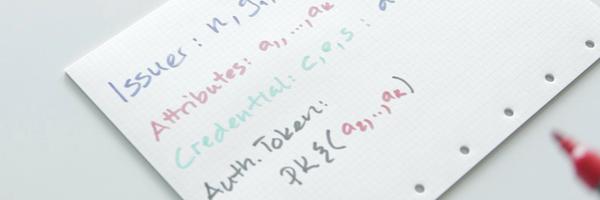 Issuer: n, g,
Attributes: a,,...,aₖ
Credential: c,e,s :
Auth. Token:
PK{(a₂,..,aₖ)